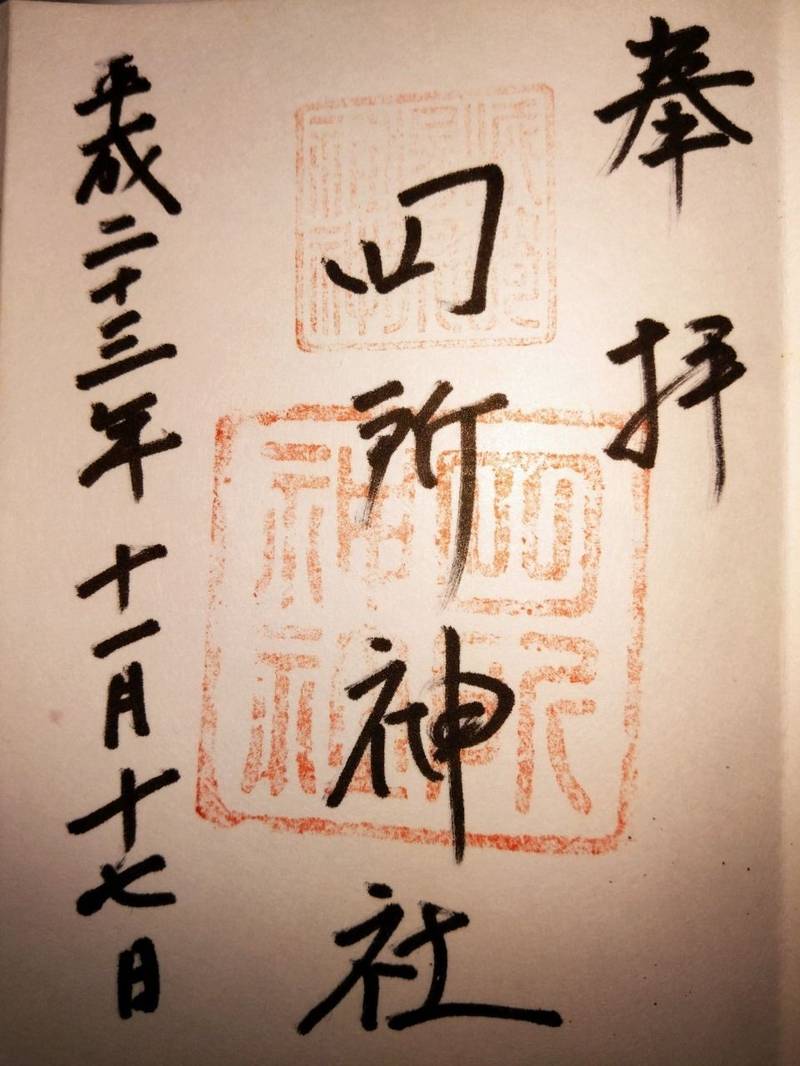 奉拝
四所神社
平成二十三年十一月十七日
四所
神社